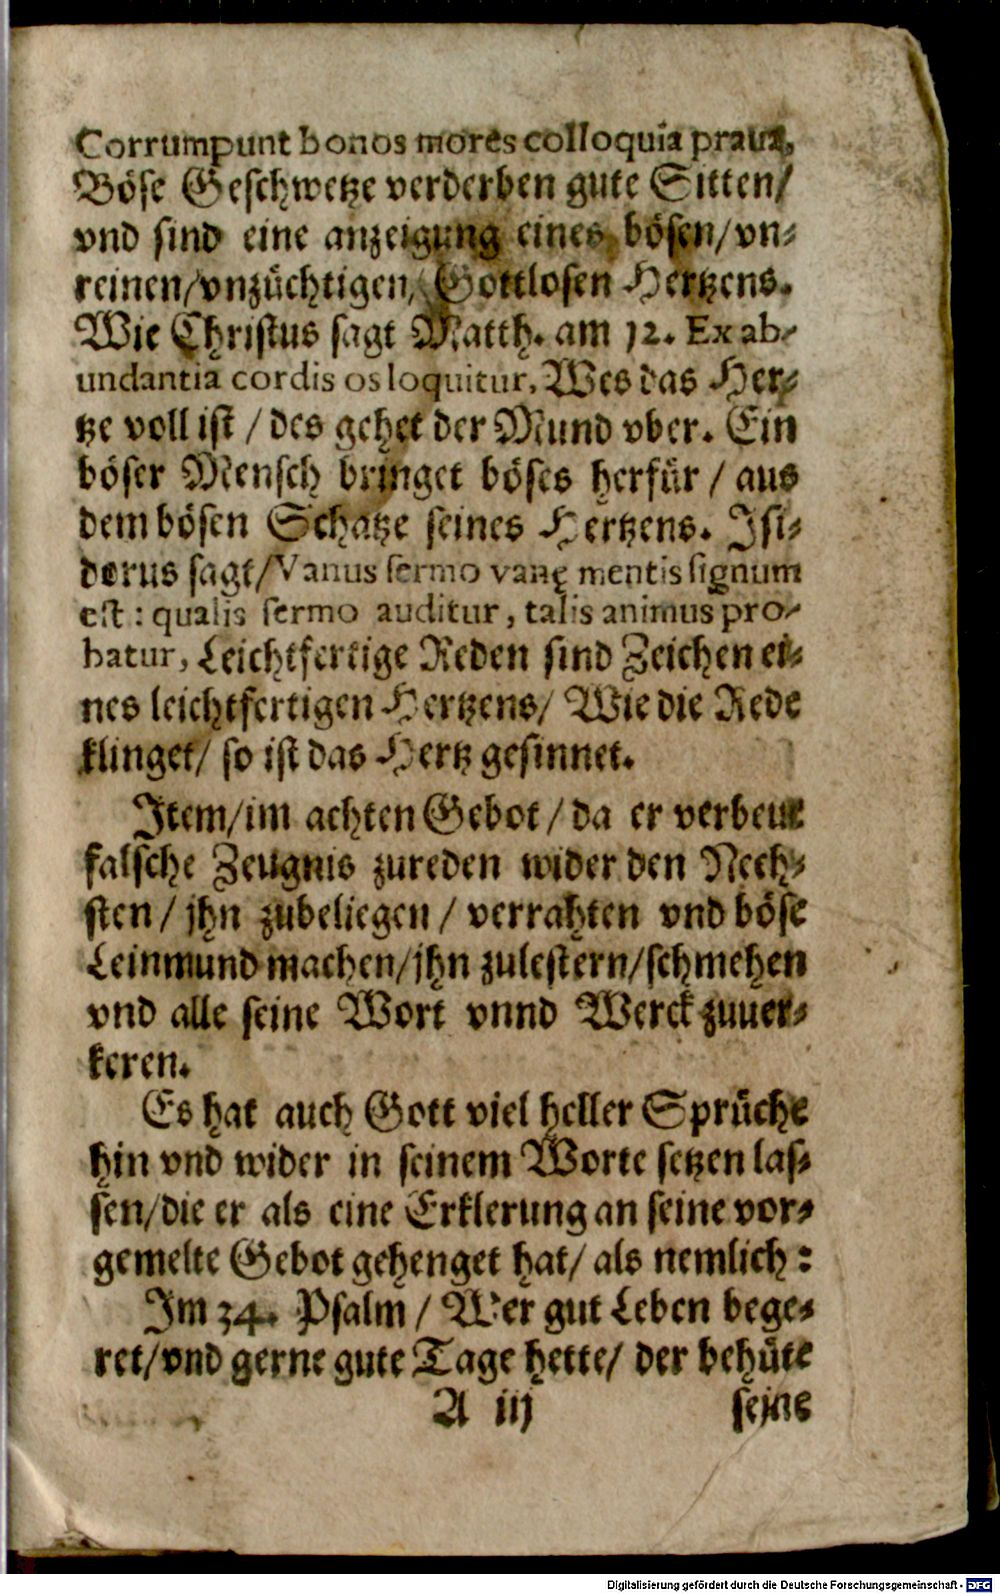 Corrumpunt bonos mores colloquia praua,
Böse Geschwetze verderben gute Sitten/
vnd sind eine anzeigung eines bösen/vn⸗
reinen/vnzüchtigen/ Gottlosen Hertzens.
Wie Christus sagt Matth. am 12. Ex ab⸗
undantia cordis os loquitur, Wes das Her⸗
tze voll ist / des gehet der Mund vber. Ein
böser Mensch bringet böses herfür / aus
dem bösen Schatze seines Hertzens. Isi⸗
dorus sagt/Vanus sermo vanę mentis signum
est: qualis sermo auditur, talis animus pro⸗
batur, Leichtfertige Reden sind Zeichen ei⸗
nes leichtfertigen Hertzens/ Wie die Rede
klinget/ so ist das Hertz gesinnet.
Item/im achten Gebot / da er verbeut
falsche Zeugnis zureden wider den Nech⸗
sten / jhn zubeliegen / verrahten vnd böse
Leinmund machen/jhn zulestern/schmehen
vnd alle seine Wort vnnd Werck zuuer⸗
keren.
Es hat auch Gott viel heller Sprüche
hin vnd wider in seinem Worte setzen las⸗
sen/die er als eine Erklerung an seine vor⸗
gemelte Gebot gehenget hat/ als nemlich:
Im 34. Psalm / Wer gut Leben bege⸗
ret/vnd gerne gute Tage hette/ der behüte
A iij seine
Digitalisierung gefördert durch die Deutsche Forschungsgemeinschaft - DFG